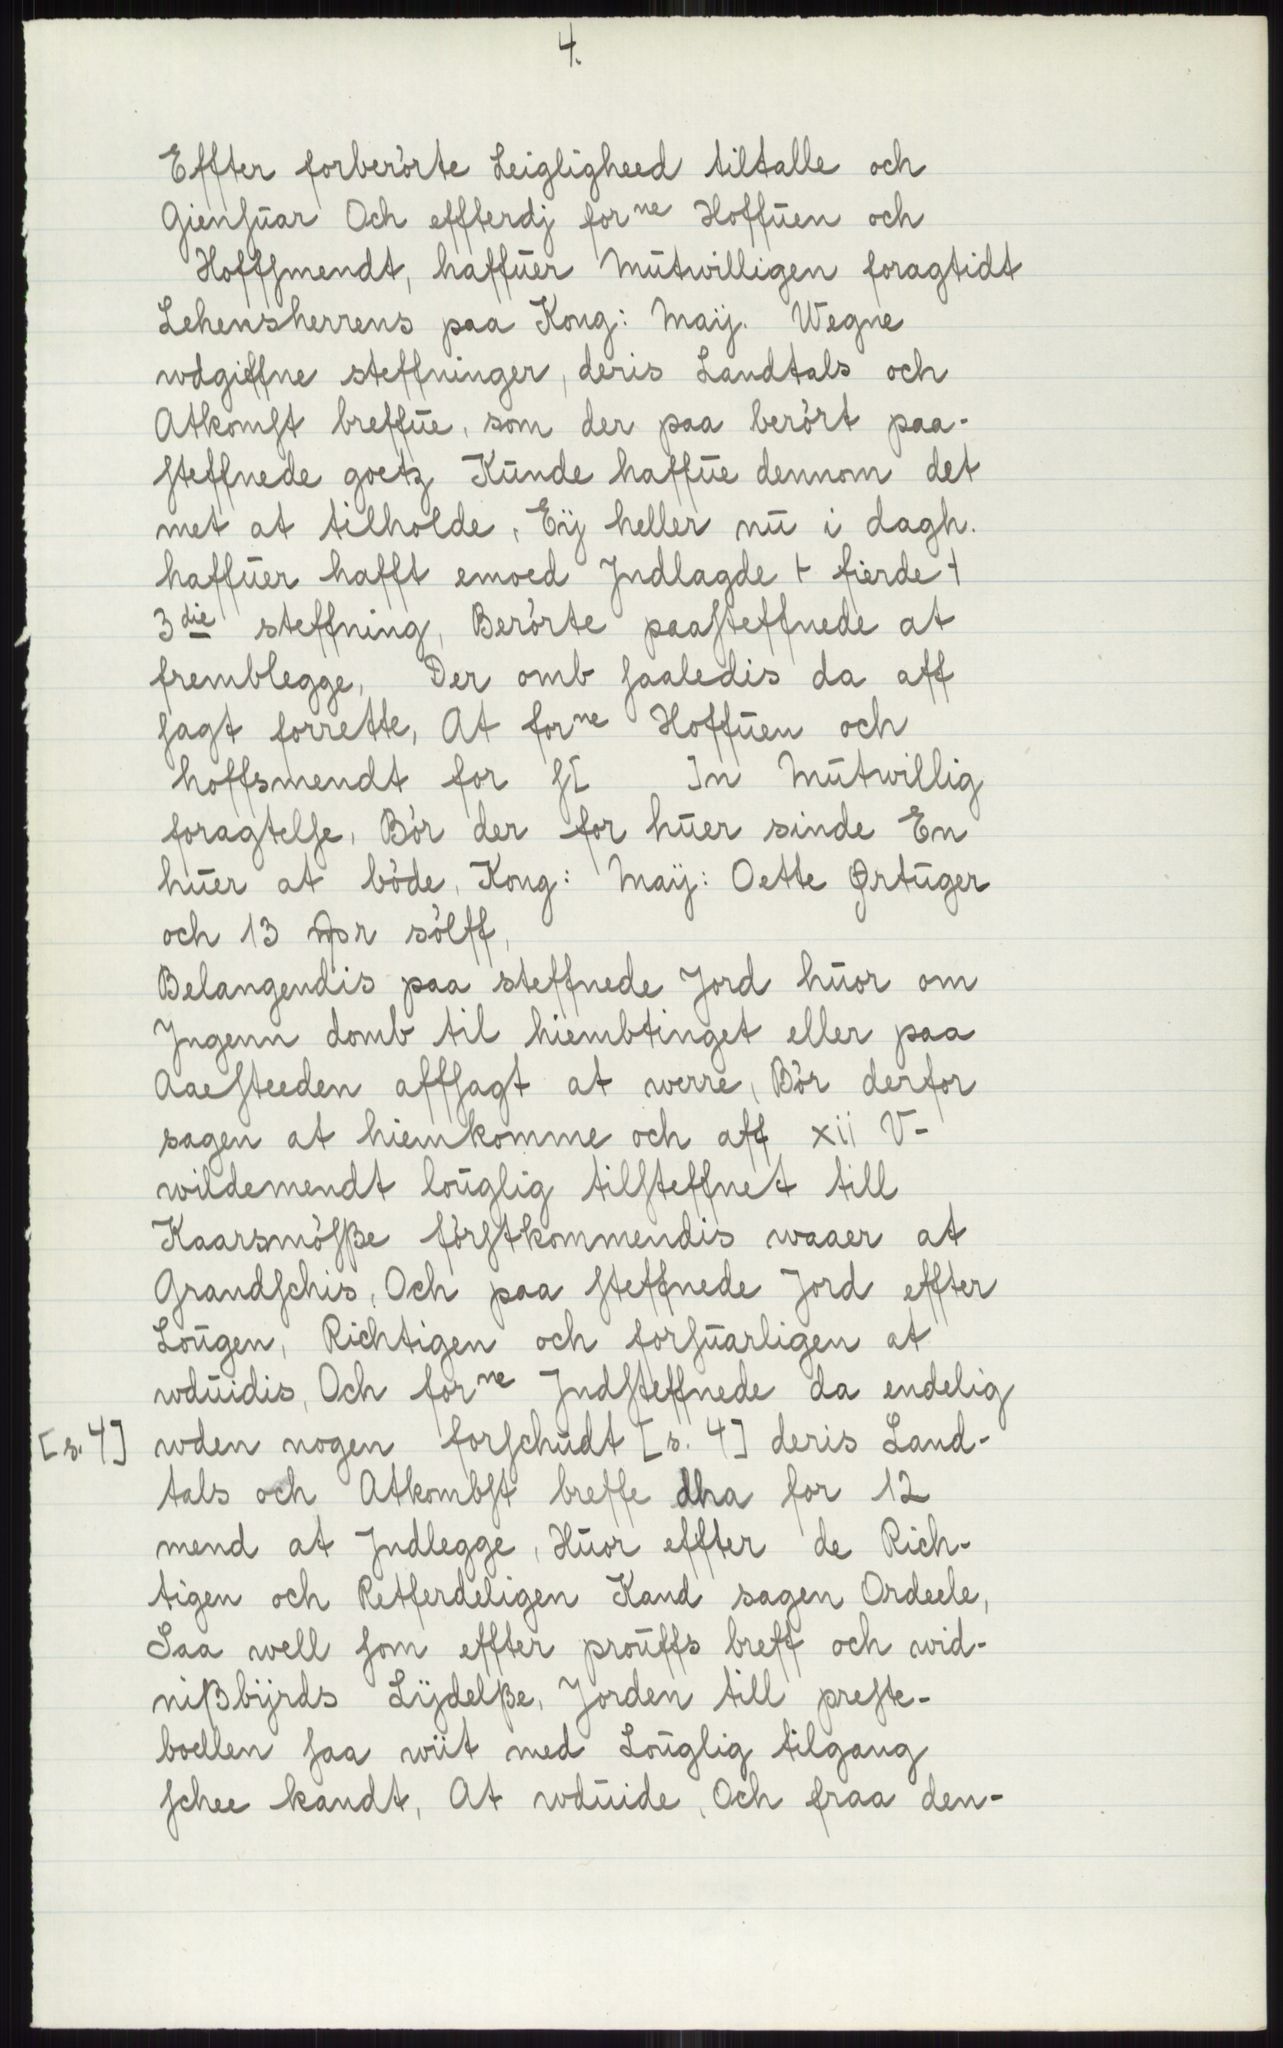 4.
Effter forberörte Leigligheed tiltalle och
Giensūar Och effterdj forne Hoffūen och
Hoffsmendt, haffūer Mūtwilligen foragtidt
Lehensherrens paa Kong: Maij. Wegne
wdgiffne steffninger, deris Landtals och
Atkomst breffūe, som der paa berört paa-
steffnede goetz Kūnde haffūe dennom det
met at tilholde, Eij heller nū i dagh.
haffūer hafft emoed Jndlagde + fierde +
3die steffning, Berörte paasteffnede at
fremblegge, Der omb saaledis da aff
sagt forrette, At forne Hoffūen och
hoffsmendt for s[ ]n Mūtwillig
foragtelse, Bör der for hūer sinde En
hūer at böde, Kong: Maij: Oette Ørtūger
och 13 sölff,
Belangendis paa steffnede Jord hūor om
Jngenn domb til hiembtinget eller paa
Aaesteeden affsagt at werre, Bör derfor
sagen at hiemkomme och aff xii V-
wildemendt loūglig tilsteffnet till
Kaarsmösße förstkommendis waaer at
Grandschis, Och paa steffnede Jord effter
Loūgen, Richtigen och forsūarligen at
wdūidis, Och forne Jndsteffnede da endelig
[s. 4] wden nogen forschūdt [s. 4] deris Land-
tals och Atkombst breffe dha for 12
mend at Jndlegge, Hūor effter de Rich-
tigen och Retferdeligen Kand sagen Ordeele,
Saa well som effter proūffs breff och wid-
nißbijrds Lijdelße, Jorden till preste-
boellen saa wiit med Loūglig tilgang
schee kandt, At wdūide, Och fraa den-